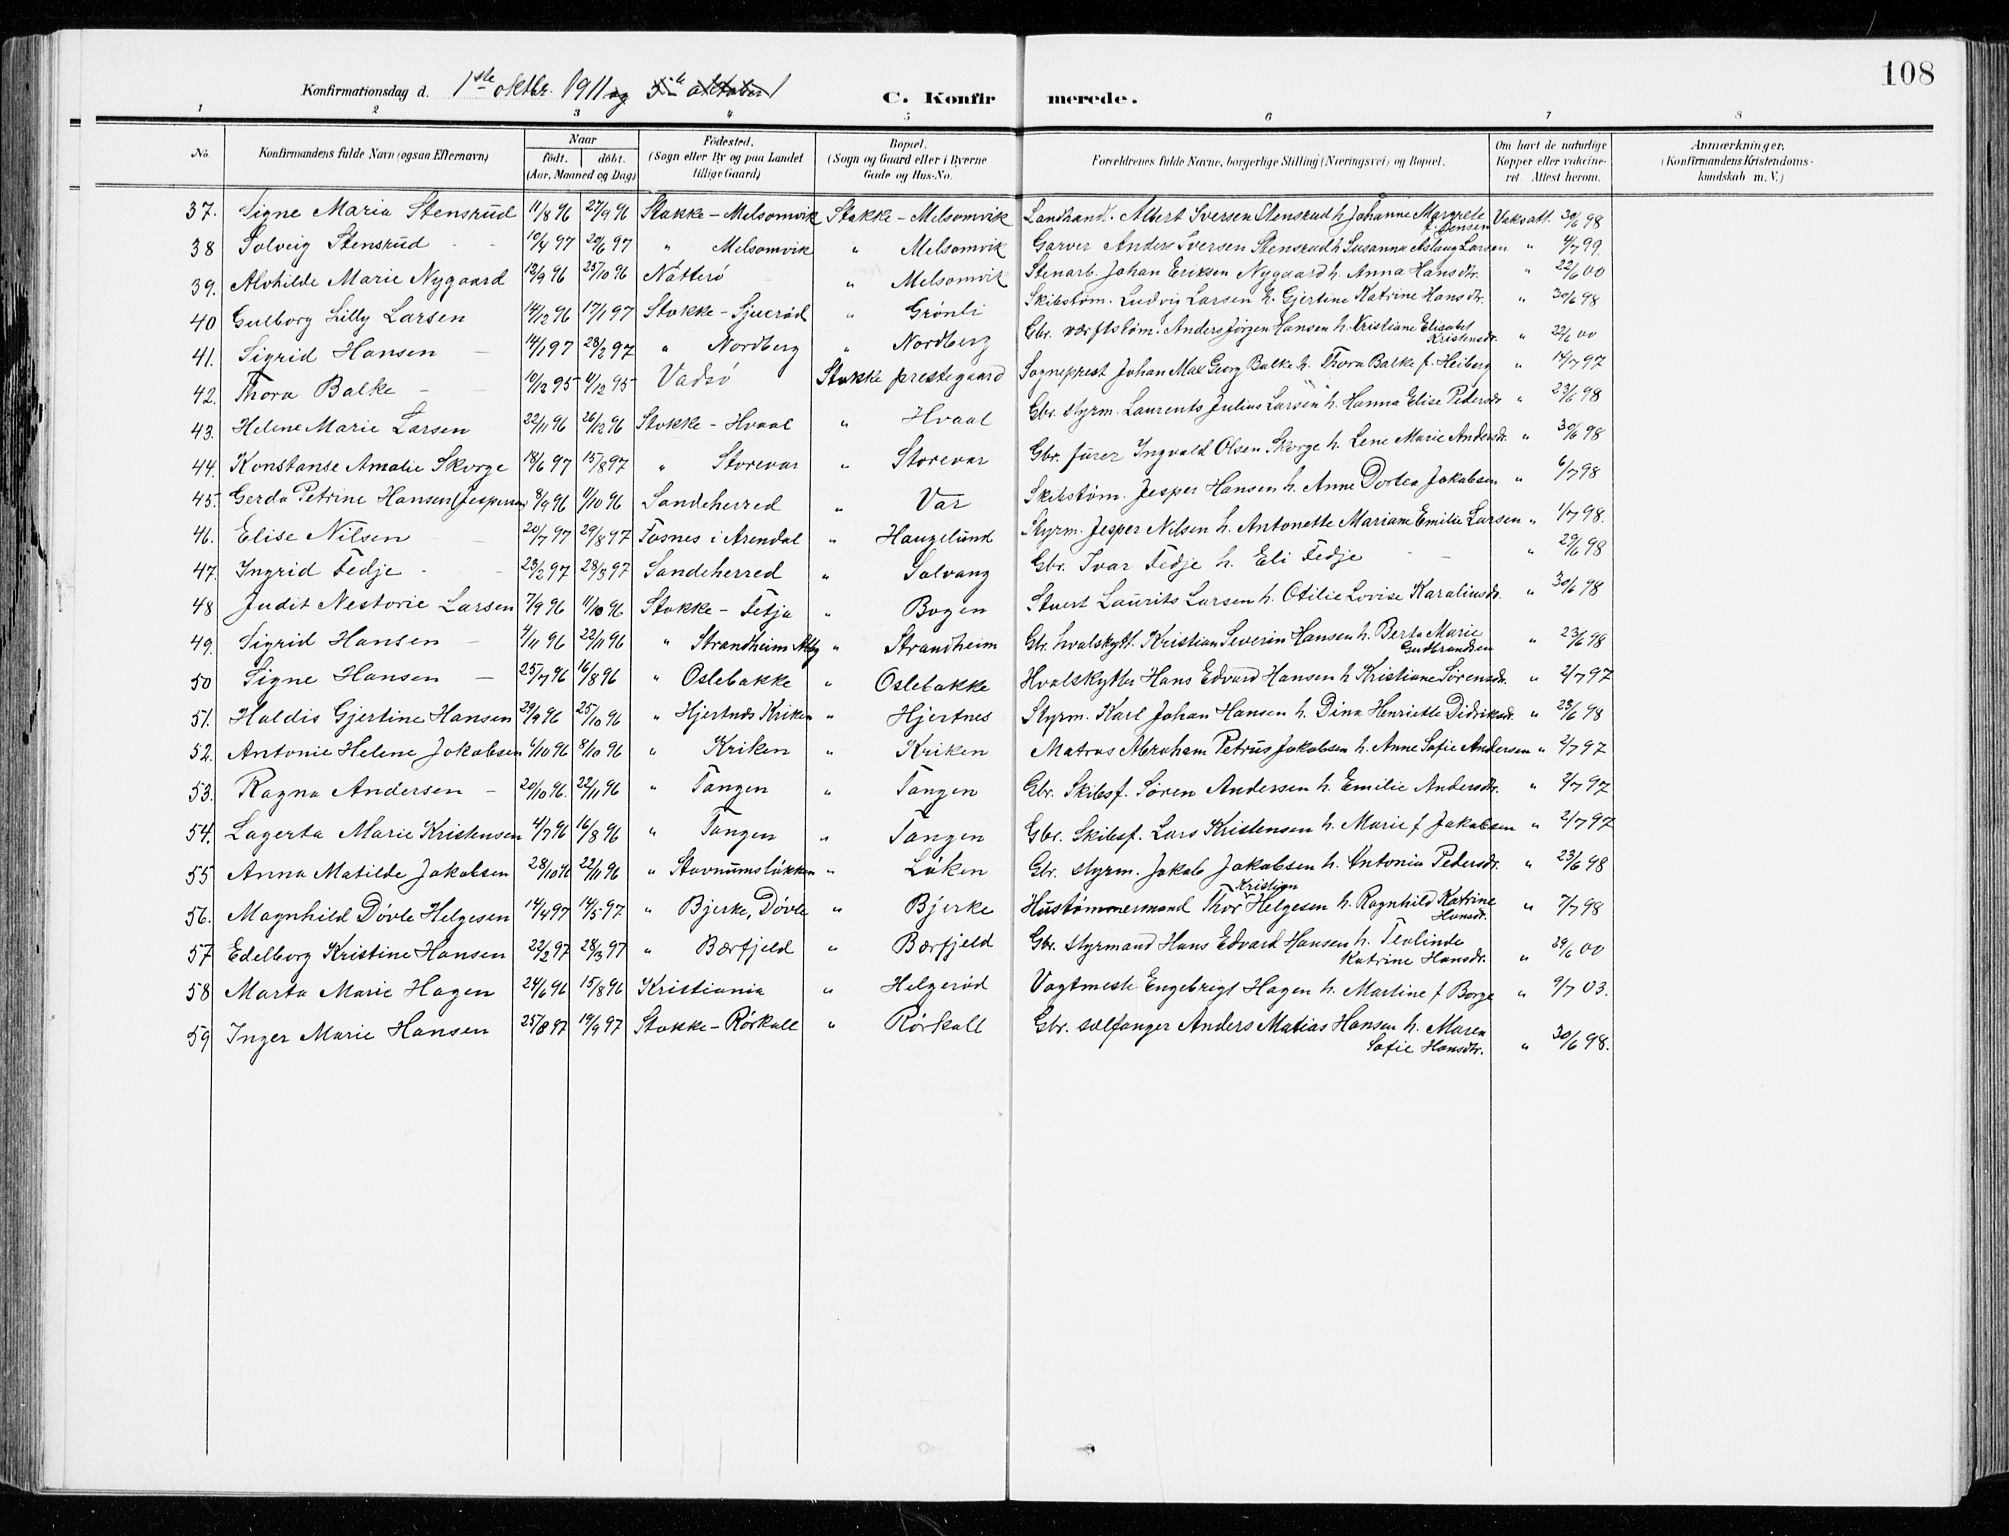 108
Konfirmationsdag d. 1ste oktbr. 1911 og 5te oktober
C. Konfirmerede.
1 2 3 4 5 6 7 8
No. Konfirmandens fulde Navn (ogsaa Efternavn) Naar født. døbt. (Aar, Maaned og Dag) Fødested. (Sogn eller By og paa Landet tillige Gaard) Bopæl. (Sogn og Gaard eller i Byerne Gade og Hus-No. Forældrenes fulde Navne, borgerlige Stilling (Næringsvei) og Bopæl. Om havt de naturlige Kopper eller vakcineret. Attest herom. Anmærkninger. (Konfirmandens Kristendomskundskab m. V.)
37. Signe Maria Stensrud 11/8 96 27/9 96 Stokke - Melsomvik Stokke - Melsomvik Landhand. Albert Iversen Stensrud h Johanne Margrete f. Jensen Vaksatt. 30/6 98
38 Solveig Stensrud 10/4 97 20/6 97 " Melsomvik " Melsomvik Garver Anders Iversen Stensrud h Susanna Aslaug Larsen " 4/7 99.
39. Alvhilde Marie Nygaard 13/9 96 25/10 96 Nøtterø " Melsomvik Stenarb. Johan Eriksen Nygaard h. Anna Hansdtr. " 22/6 00
40 Gulborg Lilly Larsen 14/12 96 17/1 97 Stokke - Sjuerød " Grønli Skibstøm. Ludvig Larsen h. Gjertine Katrine Hansdtr. " 30/6 98
41. Sigrid Hansen 14/1 97 28/2 97 " Nordberg " Nordberg Gbr. værftstøm. Anders Jørgen Hansen h. Kristiane Elisabet Kristensdr. " 22/6 00
42. Thora Balke 10/12 95 4/12 95 Vadsø Stokke prestegaard Sogneprest Johan Max Georg Balke h. Thora Balke f. Heiberg " 14/7 97
43. Helene Marie Larsen 22/11 96 26/12 96 Stokke - Hvaal " Hvaal Gbr. styrm. Laurents Julius Larsen h. Hanna Elise Pedersdr " 23/6 98
44. Konstanse Amalie Skorge 18/6 97 15/8 97 " Storevar " Storevar Gbr. fürer Ingvald Olsen Skorge h. Lene Marie Andersdr. " 30/6 98
45. Gerda Petrine Hansen (Jespersen) 8/9 96 11/10 96 Sandeherred " Var Skibstøm. Jesper Hansen h. Anne Dortea Jakobsen " 6/7 98
46. Elise Nilsen 20/7 97 29/8 97 Fosnes i Arendal " Haugelund Styrm. Jesper Nilsen h. Antonette Mariane Emilie Larsen " 1/7 98.
47. Ingrid Fedje 23/2 97 28/3 97 Sandeherred " Solvang Gbr. Ivar Fedje h. Eli Fedje " 29/6 98
48 Judit Nestorie Larsen 7/9 96 11/10 96 Stokke - Fetja " Bogen Stuert Laurits Larsen h. Otilie Lovise Karoliusdr. " 30/6 98
49. Sigrid Hansen 4/11 96 22/11 96 " Strandheim " Strandheim Gbr. hvalskytt. Kristian Severin Hansen h. Berta Marie Gudbrandsen " 23/6 98
50 Signe Hansen 25/7 96 16/8 96 " Oslebakke " Oslebakke Hvalskytter Hans Edvard Hansen h Kristiane Sørensdr. " 2/7 97
51. Haldis Gjertine Hansen 29/9 96 25/10 96 " Hjertnes Kriken " Hjertnes Styrm. Karl Johan Hansen h. Dina Henriette Didriksdr. " 23/6 98
52. Antonie Helene Jakobsen 6/10 96 8/10 96 " Kriken " Kriken Matros Abraham Petrus Jakobsen h. Anne Sofie Andersen " 2/7 97
53. Ragna Andersen 20/10 96. 22/11 96 " Tangen " Tangen Gbr. Skibsf. Søren Andersen h. Emilie Andersdtr. " 2/7 97
54. Lagerta Marie Kristensen 4/7 96 16/8 96 " Tangen " Tangen Gbr. Skibsf. Lars Kristensen h. Marie f Jakobsen " 2/7 97
55 Anna Matilde Jakobsen 28/10 96 22/11 96 " Stavnumsløkken " Løken Gbr. styrm. Jakob Jakobsen h. Antonia Pedersdr. " 23/6 98
56. Magnhild Døvle Helgesen 14/4 97 14/5 97 " Bjerke, Døvle " Bjerke Hustømmermand Thor Kristian Helgesen h. Ragnhild Katrine Hansdr. " 7/7 98
57 Edelborg Kristine Hansen 22/2 97 28/3 97 " Bærfjeld " Bærfjeld Gbr. styrmand Hans Edvard Hansen h. Teolinde Katrine Hansdr. " 29/6 00
58 Marta Marie Hagen 24/6 96 15/8 96 Kristiania " Helgerød Vagtmeste Engebrigt Hagen h. Martine f Borge " 9/7 03.
59 Inger Marie Hansen 25/8 97 19/9 97 Stokke - Rørkall " Rørkall Gbr. sælfanger Anders Matias Hansen h. Maren Sofie Hansdtr. " 30/6 98.